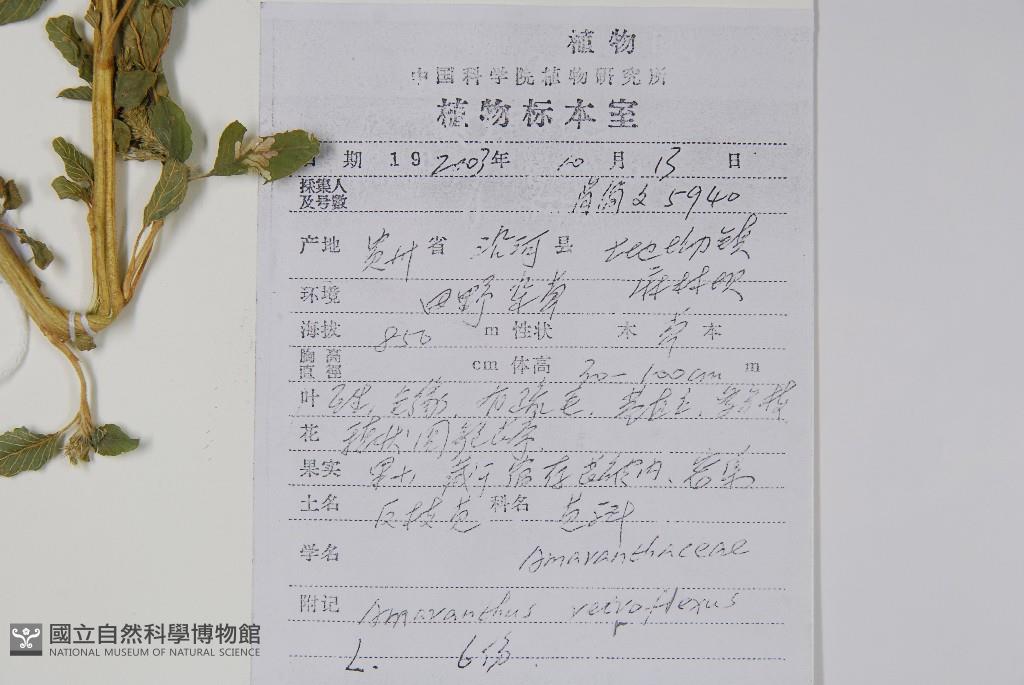 植物
中国科学院植物研究所
植物标本室
日 期 19 2003年 10 月 13 日
採集人
及号数 肖简文 5940
产地 贵州 省 沿河 县
环境 田野杂草
海拔 850 m 性状 木 草 本
胸高
直径 cm 体高 20-100cm m
叶 互生, 全缘, 有疏毛, 茎直立,
花 穗状圆锥花序
果实
土名 反枝苋 科名 苋科
学名 Amaranthaceae
附记 Amaranthus retroflexus
L. 6份.
國立自然科學博物館
NATIONAL MUSEUM OF NATURAL SCIENCE